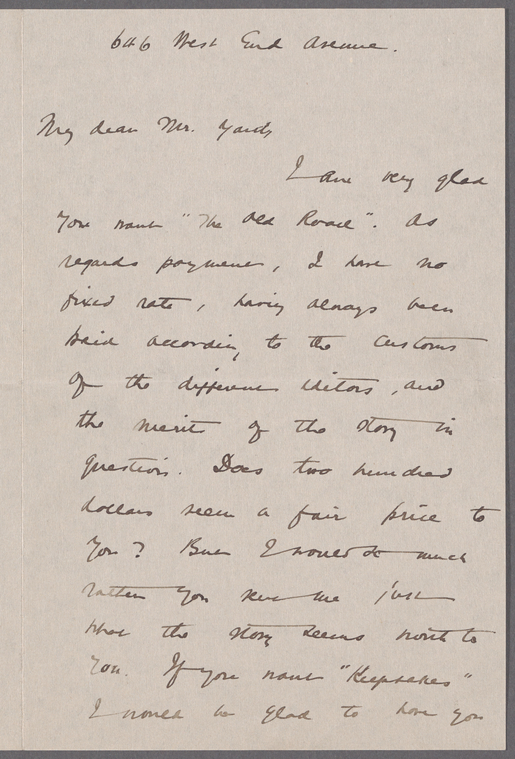 646 West End Avenue.
My dear Mr. Yards
I am very glad
you want "The Old Road". As
regards payment, I have no
fixed rate, having always been
paid according to the customs
of the different editors, and
the merits of the story in
question. Does two hundred
dollars seem a fair price to
you? But I would much
rather you send me just
what the story seems worth to
you. If you want "Keepsakes"
I would be glad to have you